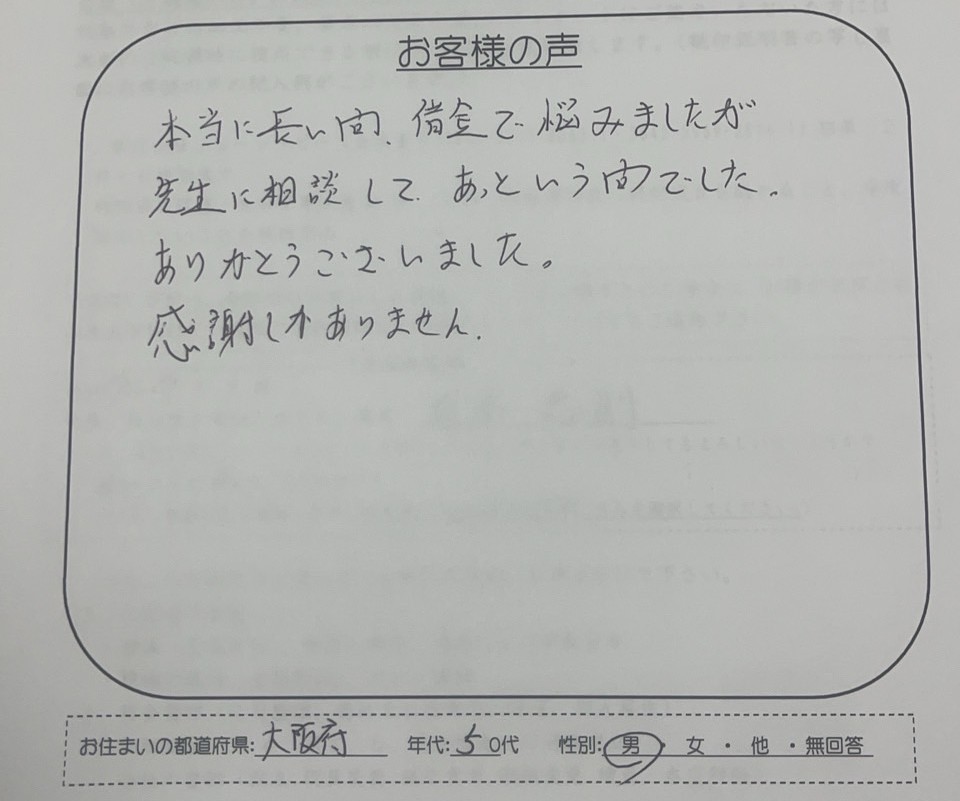 お客様の声
本当に長い間、借金で悩みましたが
先生に相談して、あっという間でした.
ありがとうございました。
感謝しかありません.
お住まいの都道府県: 大阪府 年代: 50代 性別: 男・女・他・無回答